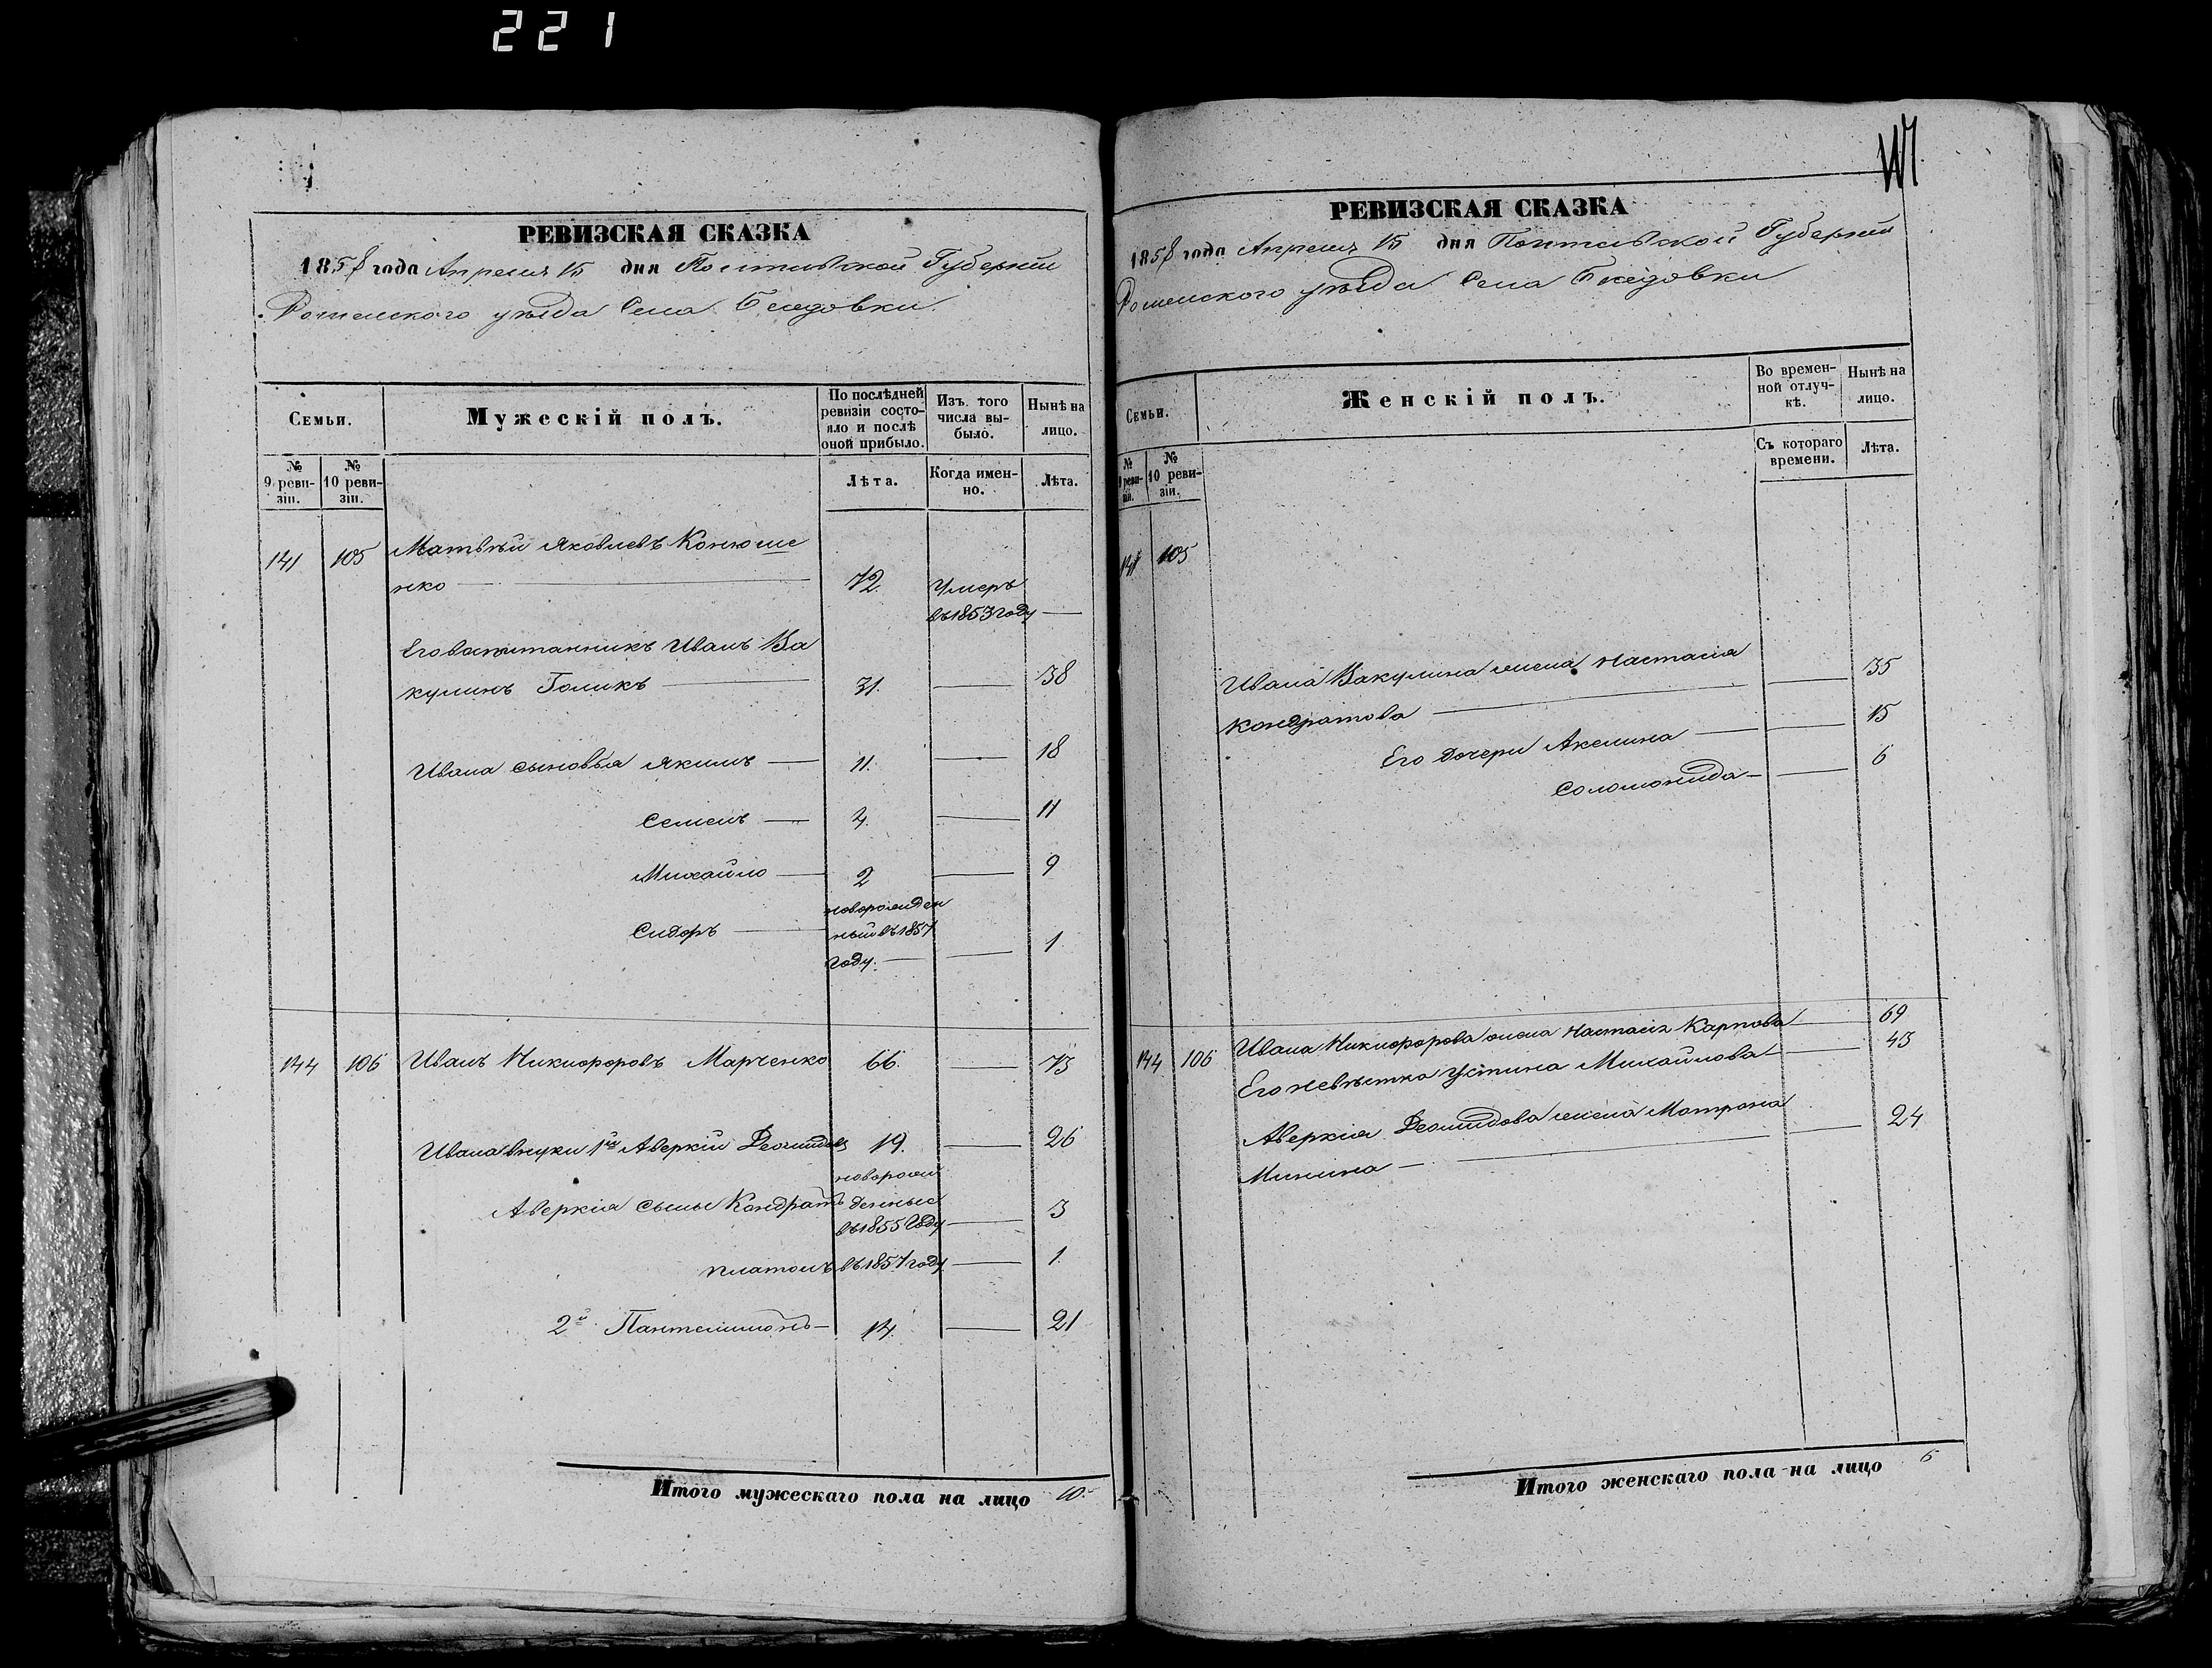 221
РЕВИЗСКАЯ СКАЗКА
1858 года Апреля 15 дня Полтавской Губерніи
Роменского уезда Села Беседовки.
Семьи.
Мужескій полъ.
По послѣдней ревизіи состояло и послѣ оной прибыло.
Изъ того числа выбыло.
Нынѣ на лицо.
№ 9 ревизіи.
№ 10 ревизіи.
Лѣта.
Когда именно.
Лѣта.
141 105 Матвѣй Яковлевъ Конюше
нко 72. Умеръ
въ 1853 году
Его воспитанникъ Иванъ Ва
кулинъ Голикъ 31. 38
Ивана сыновья Якимъ 11. 18
Семенъ 4. 11
Михайло 2 9
Сидоръ новорожден
ный въ 1857
году. 1
144 106 Иванъ Никифоровъ Марченко 66. 73
Ивана внуки 1й Аверкій Леонидовъ 19. 26
Аверкія сыны Кондратъ новорож
денные
въ 1855 Году 3
Платонъ въ 1857 году 1.
2й Пантелимонъ 14. 21
Итого мужескаго пола на лицо 10.
РЕВИЗСКАЯ СКАЗКА
1858 года Апреля 15 дня Полтавской Губерніи
Роменского уезда Села Беседовки
Семьи.
Женскій полъ.
Во временной отлучкѣ.
Нынѣ на лицо.
№ 9 ревизіи.
№ 10 ревизіи.
Съ котораго времени.
Лѣта.
141 105
Ивана Вакулина жена Настасія 35
Кондратова
Его дочери Акелина 15
Соломонида 6
144 106 Ивана Никифорова жена Настасія Карпова 69
Его невѣстка Устина Михайлова 43
Аверкія Леонидова жена Матрона 24
Минина
Итого женскаго пола на лицо 6